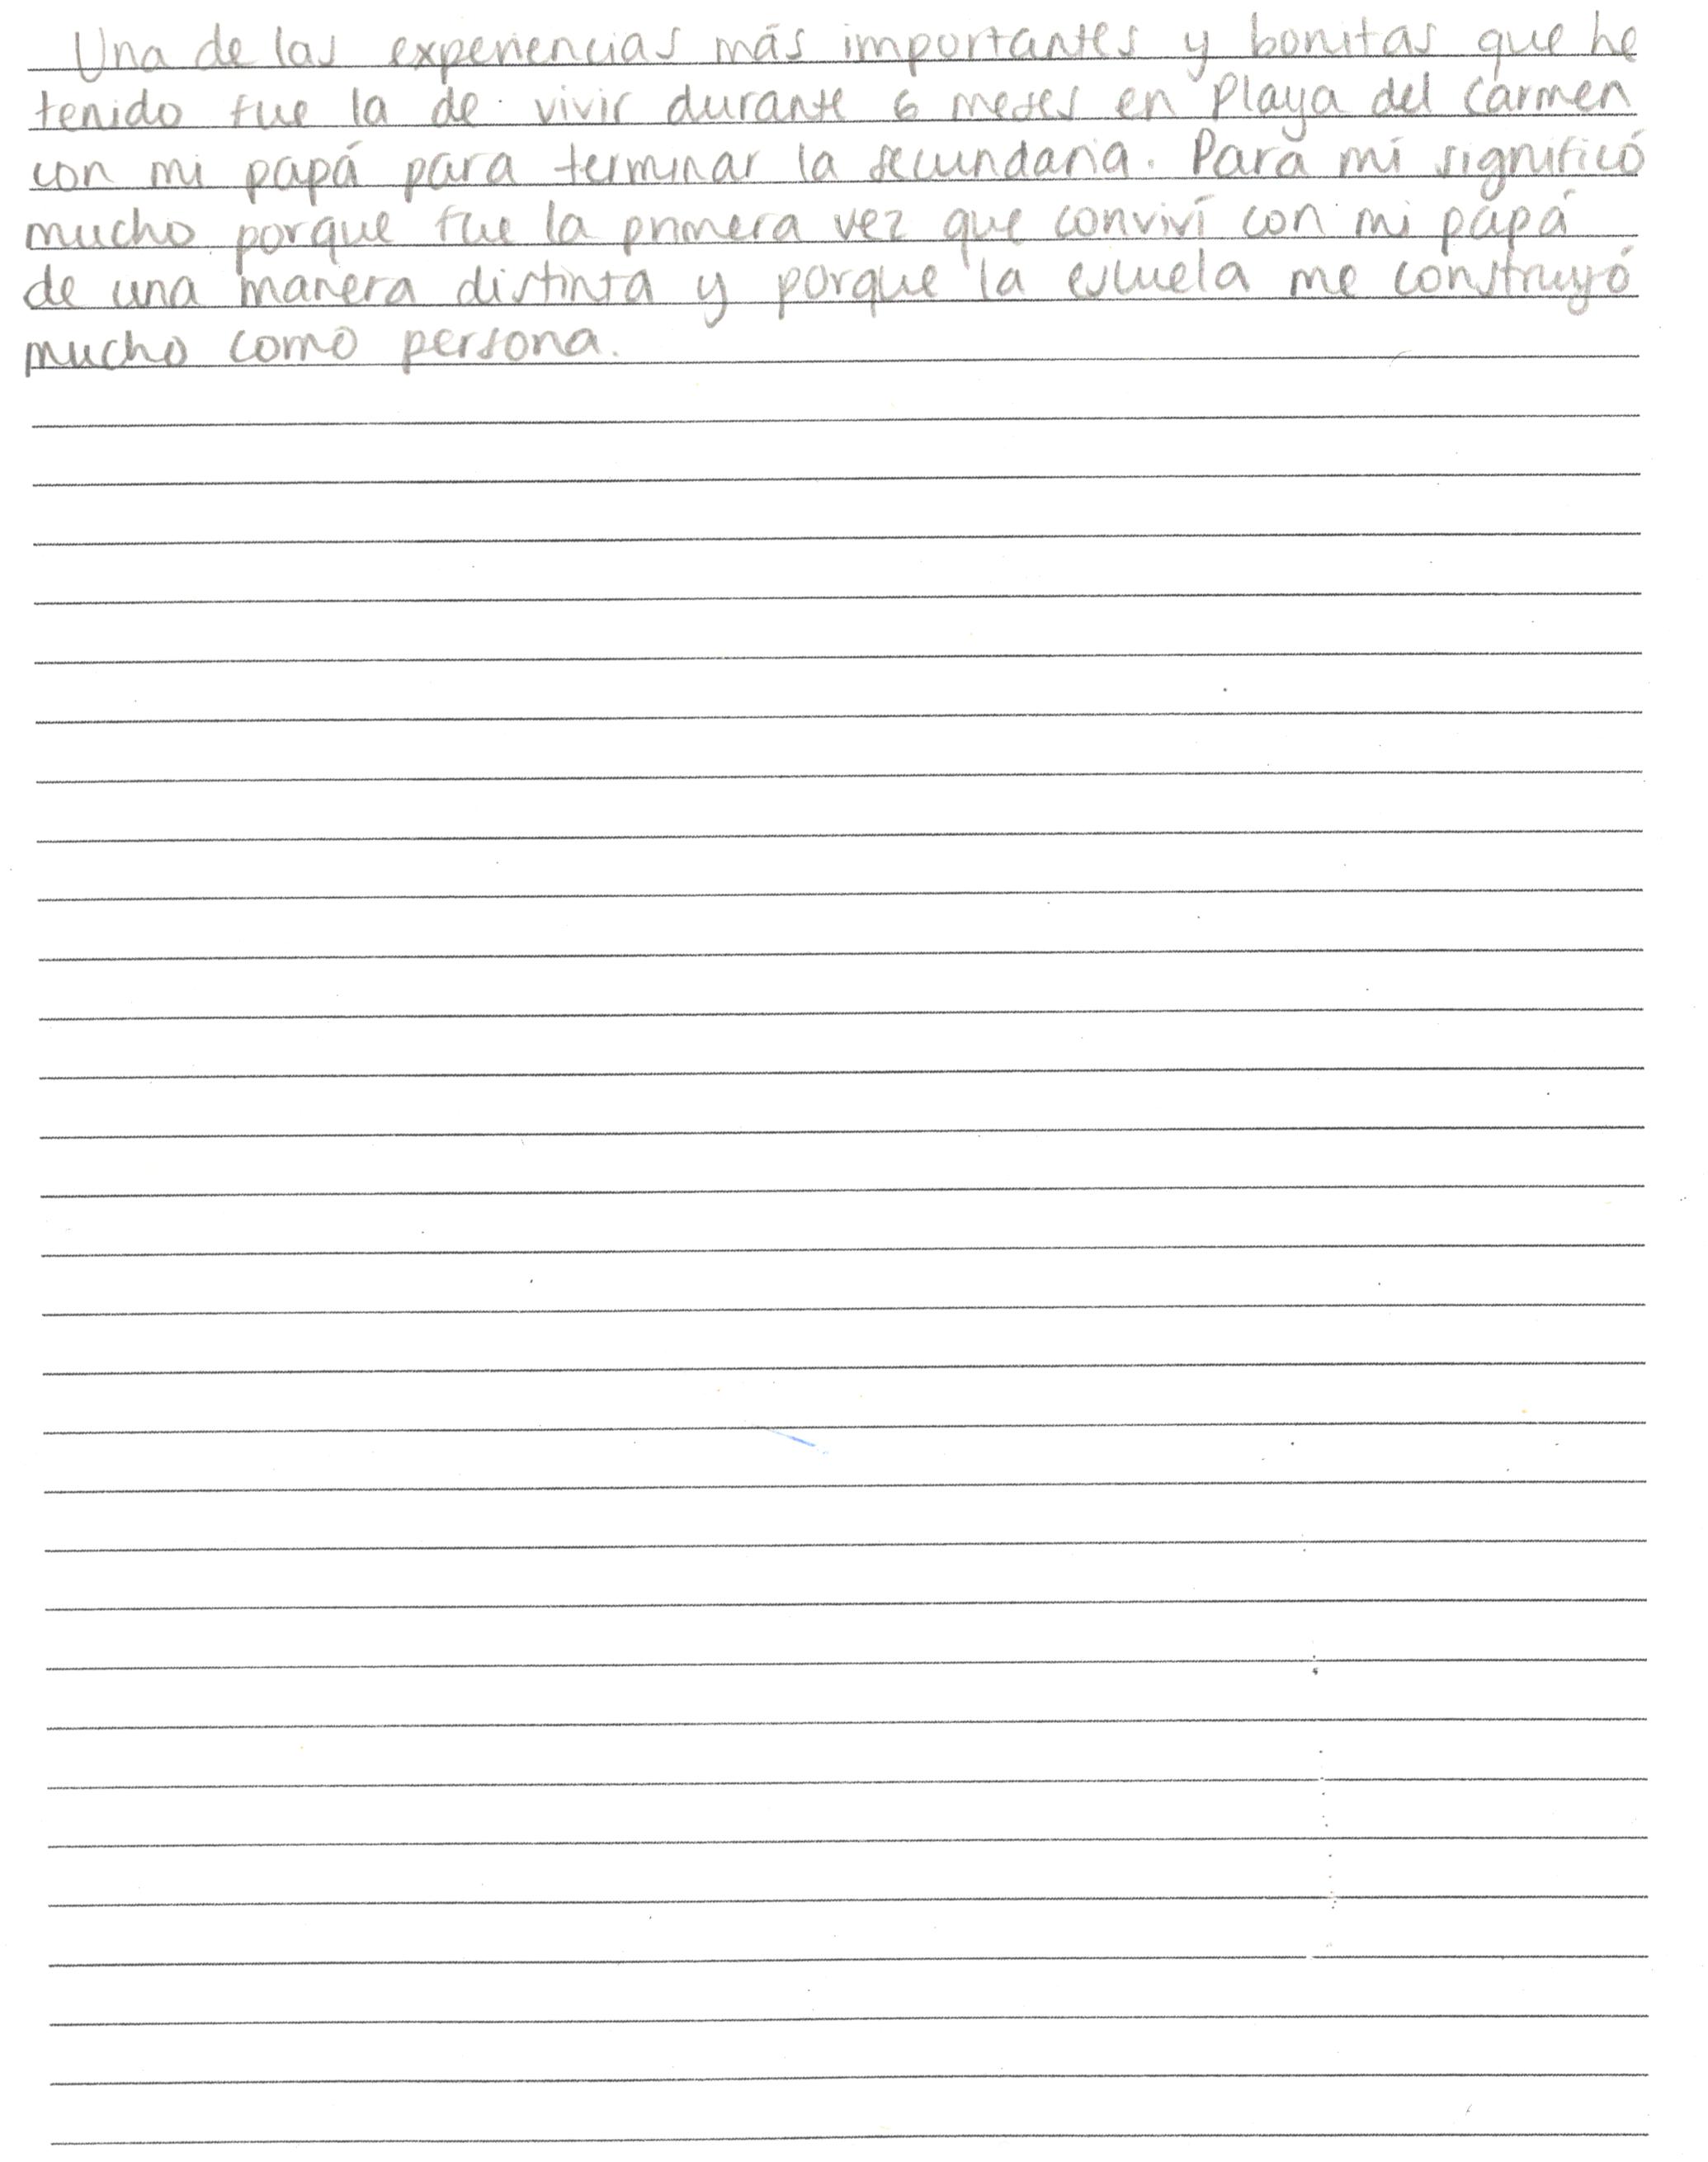 Una de las experiencias más importantes y bonitas que he
tenido fue la de vivir durante 6 meses en Playa del Carmen
con mi papá para terminar la secundaria. Para mí significó
mucho porque fue la primera vez que conviví con mi papá
de una manera distinta y porque la escuela me construyó
mucho como persona.